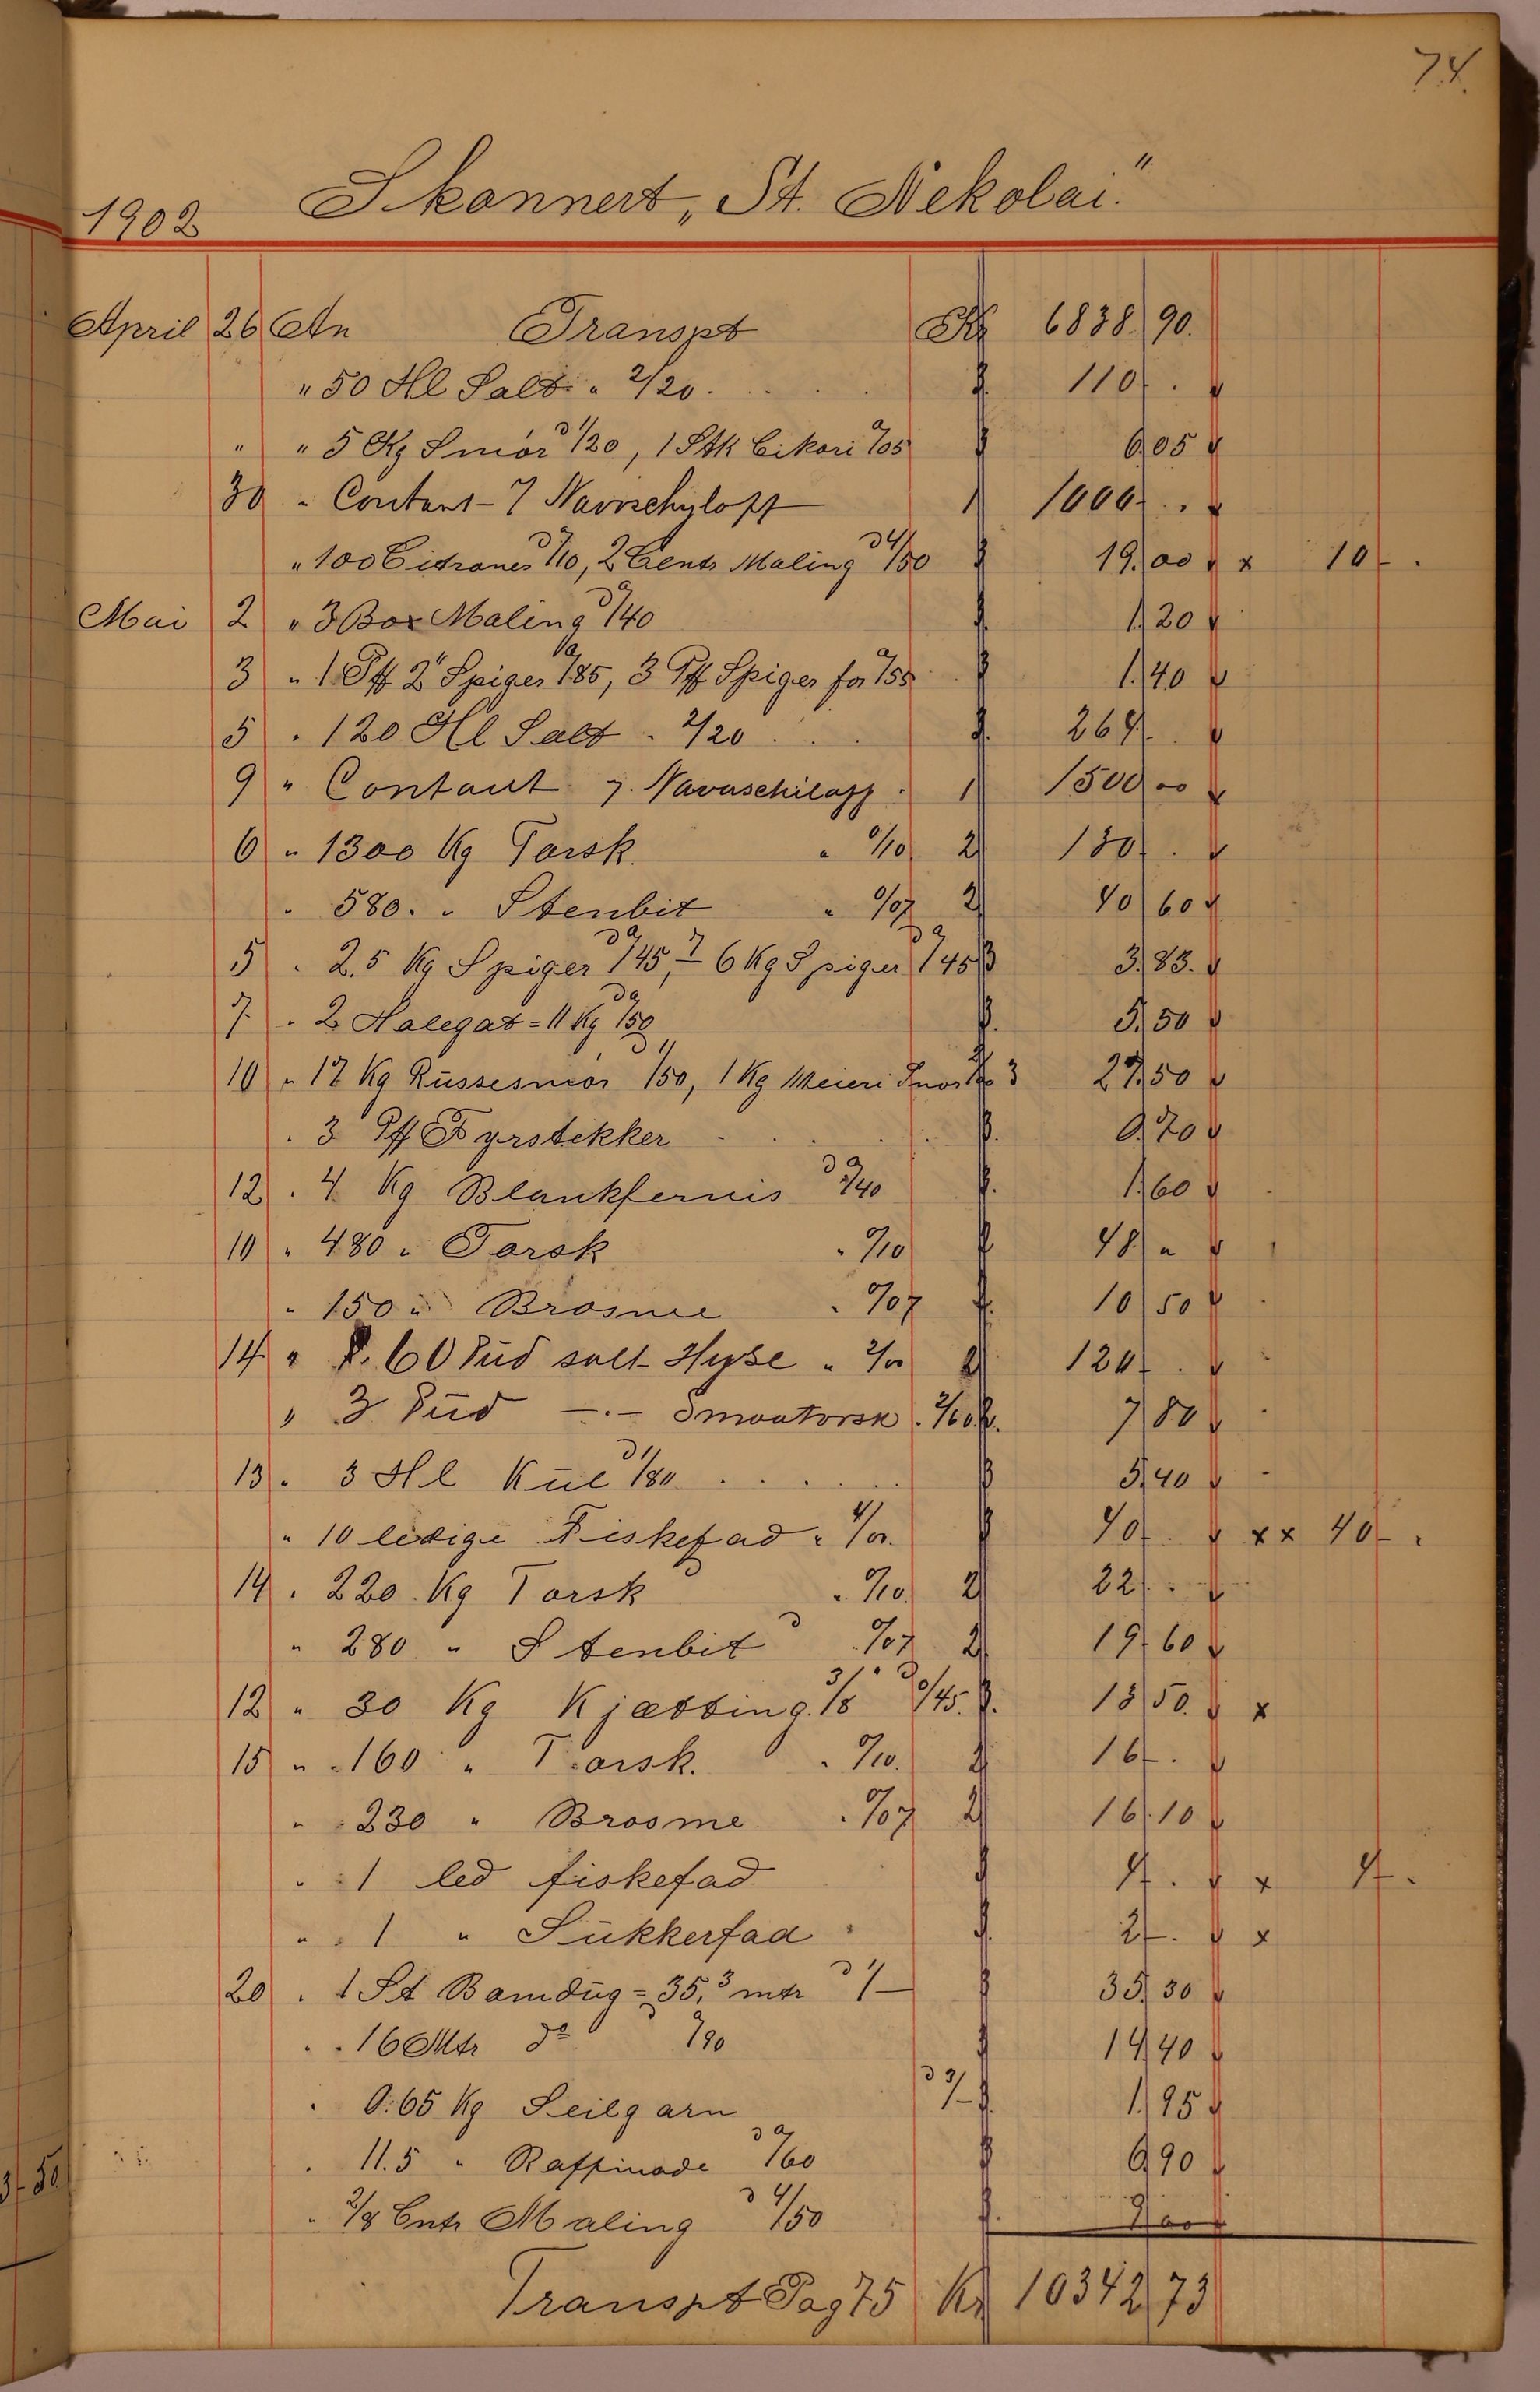 74.
1902 Skonnert „St. Nekolai."
April 26 An Transpt Kr 6838. 90.
" 50 Hl Salt " 2/20. 110 .
" " 5 Kg Smör a 1/20, 1 Stk Cikori 0/05 6 05
30 " Contant - 7 Navrschyloff 1 1000 .
" 100 Citroner 0/10, 2 Cents Maling a 4/50 19. 00 x 10 - .
Mai 2 " 3 Box Maling 0/40 1 20
3 " 1 Pk 2" Spiger 0/85, 3 Pk Spiger for 0/55 1. 40
5 " 120 Hl Salt " 2/20 264
9 " Contant 7. Navaschiloff 1 1500 00
6 " 1300 Kg Torsk. " 0/10 2 130 .
" 580. " Stenbit " 0/07 2 40 60
5 " 2.5 Kg Spiger a 0/45, 6 Kg Spiger a 0/45 3. 83.
7. " 2 Halegat = 11 Kg a 0/50 5. 50
10 " 17 Kg Russesmör a 1/50, 1 Kg Meieri Smör 27. 50
" 3 Pk Fyrstikker 0. 70
12 " 4 Kg Blankfernis a 0/40 1. 60
10 " 480 " Torsk " 0/10 48 "
" 150 " Brosme " 0/07 10 50
14 " 60 Pud salt Hyse " 2/00 2 120 .
" 3 Pud - . - Smaatorsk " 2/60 7 80
13 " 3 Hl Kul a 1/80 5. 40
" 10 ledige Fiskefad " 4/00. 40 . x x 40 - .
14 " 220. Kg Torsk " 0/10. 2 22 .
" 280 " Stenbit 0/07 2 19 60
12 " 30 Kg Kjætting 3/8" a 0/45. 13 50. x
15 " " 160 " Torsk. " 0/10. 2 16 - .
" " 230 " Brosme " 0/07 2 16. 10
" " 1 led fiskefad 4 . x 4 - .
" " 1 " Sukkerfad 2 - . x
20 " 1 St Bamdug = 35,3 mtr a 1/- 35. 30
" " 16 Mtr do 0/90 14. 40
" 0.65 Kg Seilgarn a 3/- 1. 95
" 11.5 " Raffinade a 0/60 6. 90
" 2/8 Cntr Maling a 4/50 9 00
Transpt Pag 75 Kr 10342 73